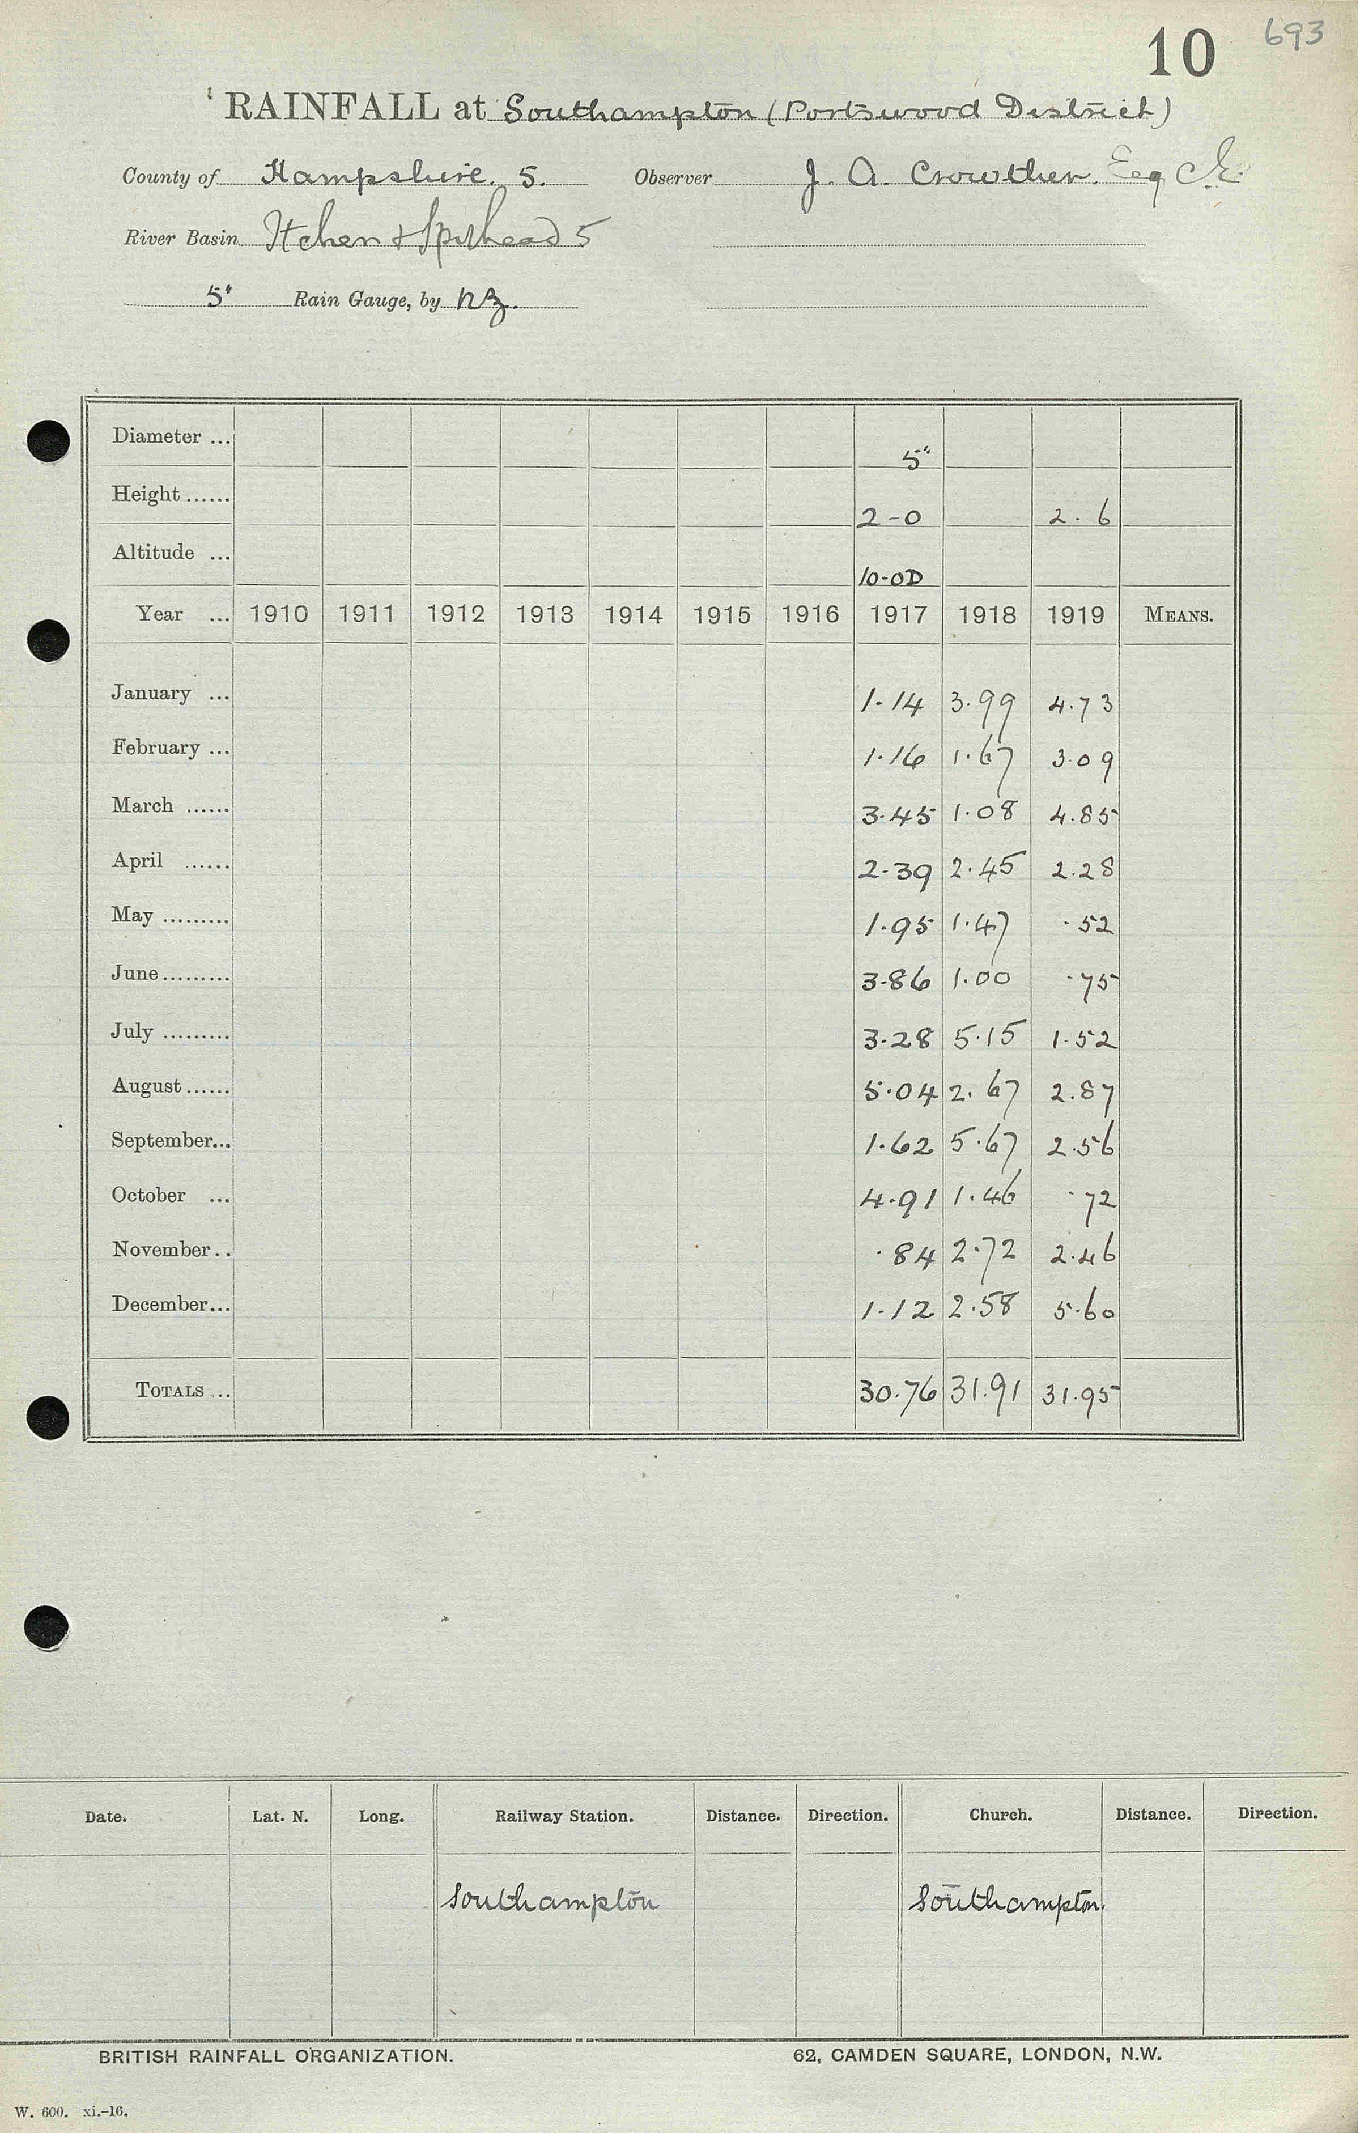 10 693
RAINFALL at Southampton (Portswood District)
County of Hampshire. 5. Observer J. A. Crowther. Esq C.E.
River Basin Itchen & Spithead 5
5" Rain Gauge, by NZ.
Diameter ... 5"
Height ...... 2-0 2.6
Altitude ... 10-OD
Year ... 1910 1911 1912 1913 1914 1915 1916 1917 1918 1919 MEANS.
January ... 1.14 3.99 4.73
February ... 1.16 1.67 3.09
March ...... 3.45 1.08 4.85
April ...... 2.39 2.45 2.28
May ......... 1.95 1.47 .52
June ......... 3.86 1.00 .75
July ......... 3.28 5.15 1.52
August ...... 5.04 2.67 2.87
September... 1.62 5.67 2.56
October ... 4.91 1.46 .72
November .. .84 2.72 2.46
December... 1.12 2.58 5.60
TOTALS ... 30.76 31.91 31.95
Date. Lat. N. Long. Railway Station. Distance. Direction. Church. Distance. Direction.
Southampton Southampton
BRITISH RAINFALL ORGANIZATION. 62, CAMDEN SQUARE, LONDON, N.W.
W. 600. xi.-16.